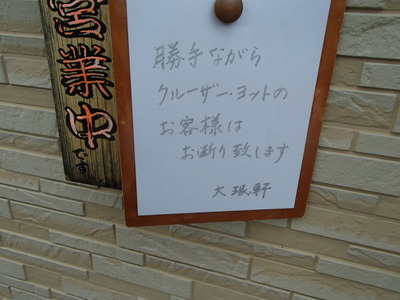 営業中
です
勝手ながら
クルーザー・ヨットの
お客様は
お断り致します
大珉軒